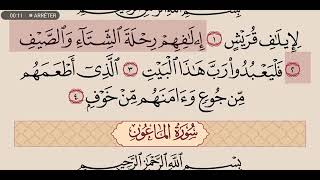 بِسْمِ ٱللَّهِ ٱلرَّحْمَٰنِ ٱلرَّحِيمِ
00:11 ARRÊTER
لِإِيلَٰفِ قُرَيْشٍ ١ إِۦلَٰفِهِمْ رِحْلَةَ ٱلشِّتَآءِ وَٱلصَّيْفِ
٢ فَلْيَعْبُدُوا۟ رَبَّ هَٰذَا ٱلْبَيْتِ ٣ ٱلَّذِىٓ أَطْعَمَهُم
مِّن جُوعٍ وَءَامَنَهُم مِّنْ خَوْفٍۭ ٤
سُورَةُ ٱلْمَاعُونِ
بِسْمِ ٱللَّهِ ٱلرَّحْمَٰنِ ٱلرَّحِيمِ